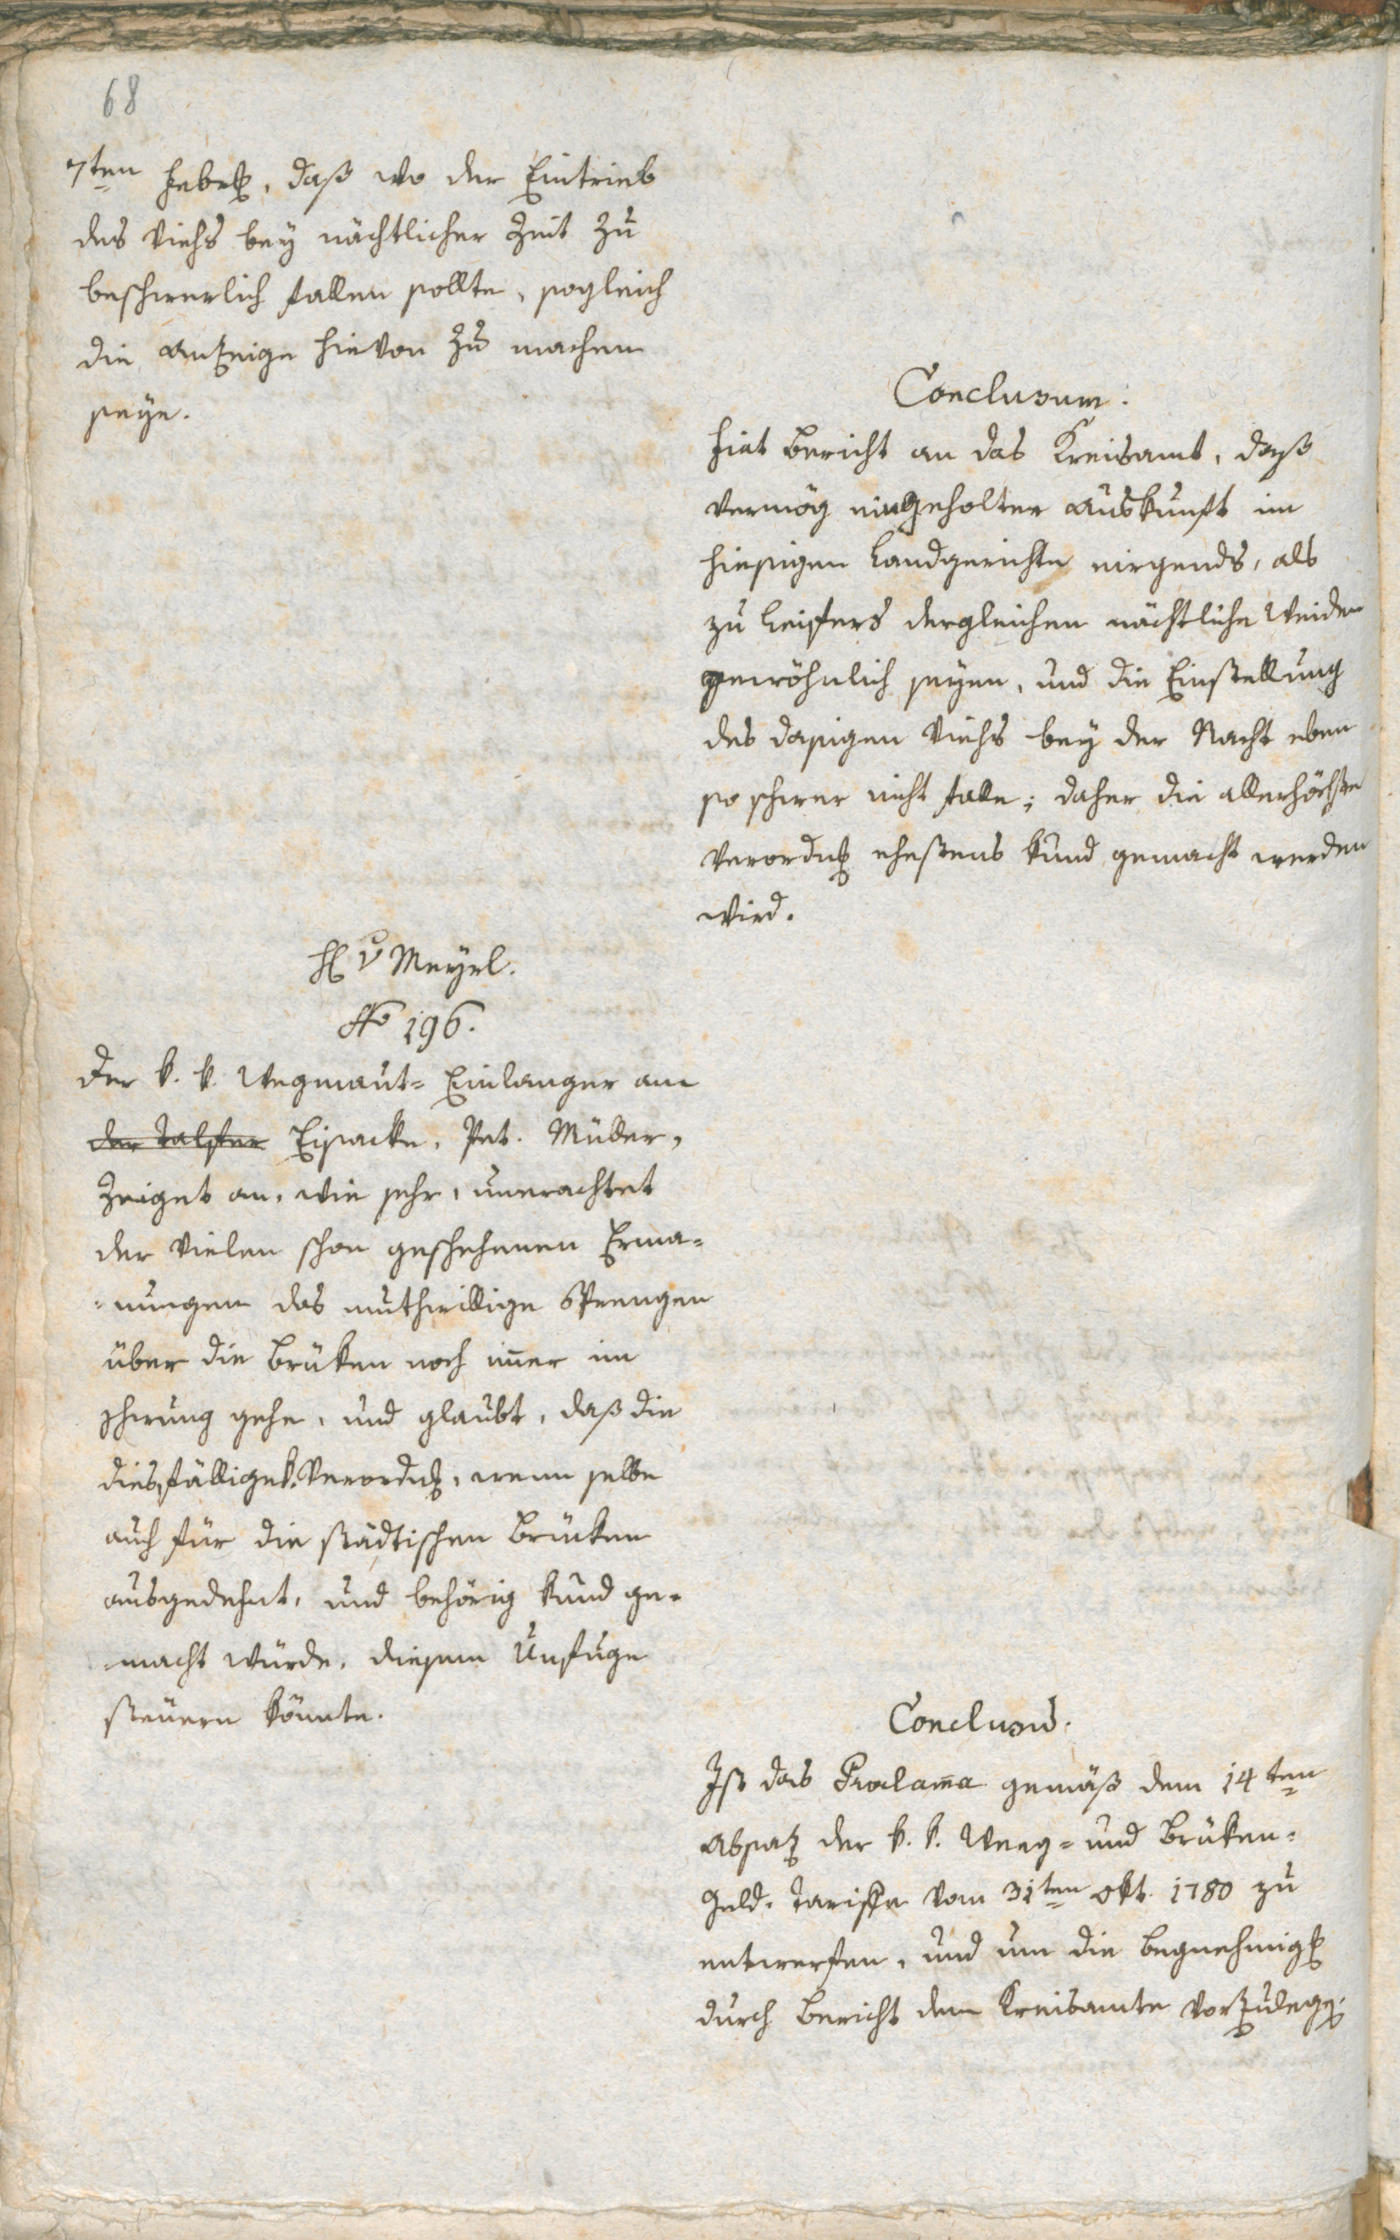 68
7ten Febr, daß wo der Eintrieb
des Viehs bey nächtlicher Zeit zu
beschwerlich fallen sollte, sogleich
die Anzeige hievon zu machen
seye.
Conclusum:
Fiat Bericht an das Kreisamt, daß
vermög eingeholter Auskunft im
hiesigen Landgerichte nirgends, als
zu Leifers dergleichen nächtliche Weiden
gewöhnlich seyen, und die Einstellung
des dasigen Viehs bey der Nacht eben
so schwer nicht falle; daher die allerhöchste
Verordng ehestens kund gemacht werden
wird.
H v Meyrl.
No 196.
Der k. k. Wegmaut= Einlanger am
der Talfer Eisacke, Pet. Müller,
zeiget an, wie sehr, unerachtet
der vielen schon geschehenen Erma=
=nungen das muthwillige Sprengen
über die Brüken noch imer im
Schwung gehe, und glaubt, daß die
diesfällige k. Verordng, wenn selbe
auch für die städtischen Brücken
ausgedehnt, und behörig kund ge=
macht würde, diesem Unfuge
steuern könnte.
Conclusu.
Ist das Proclama gemäß dem 14ten
Absatz der k. k. Weeg= und Brüken=
Geld. Tariffe vom 31ten Okt. 1780 zu
entwerfen, und um die Begnehmigg
durch Bericht dem Kreisamte vorzulegg.